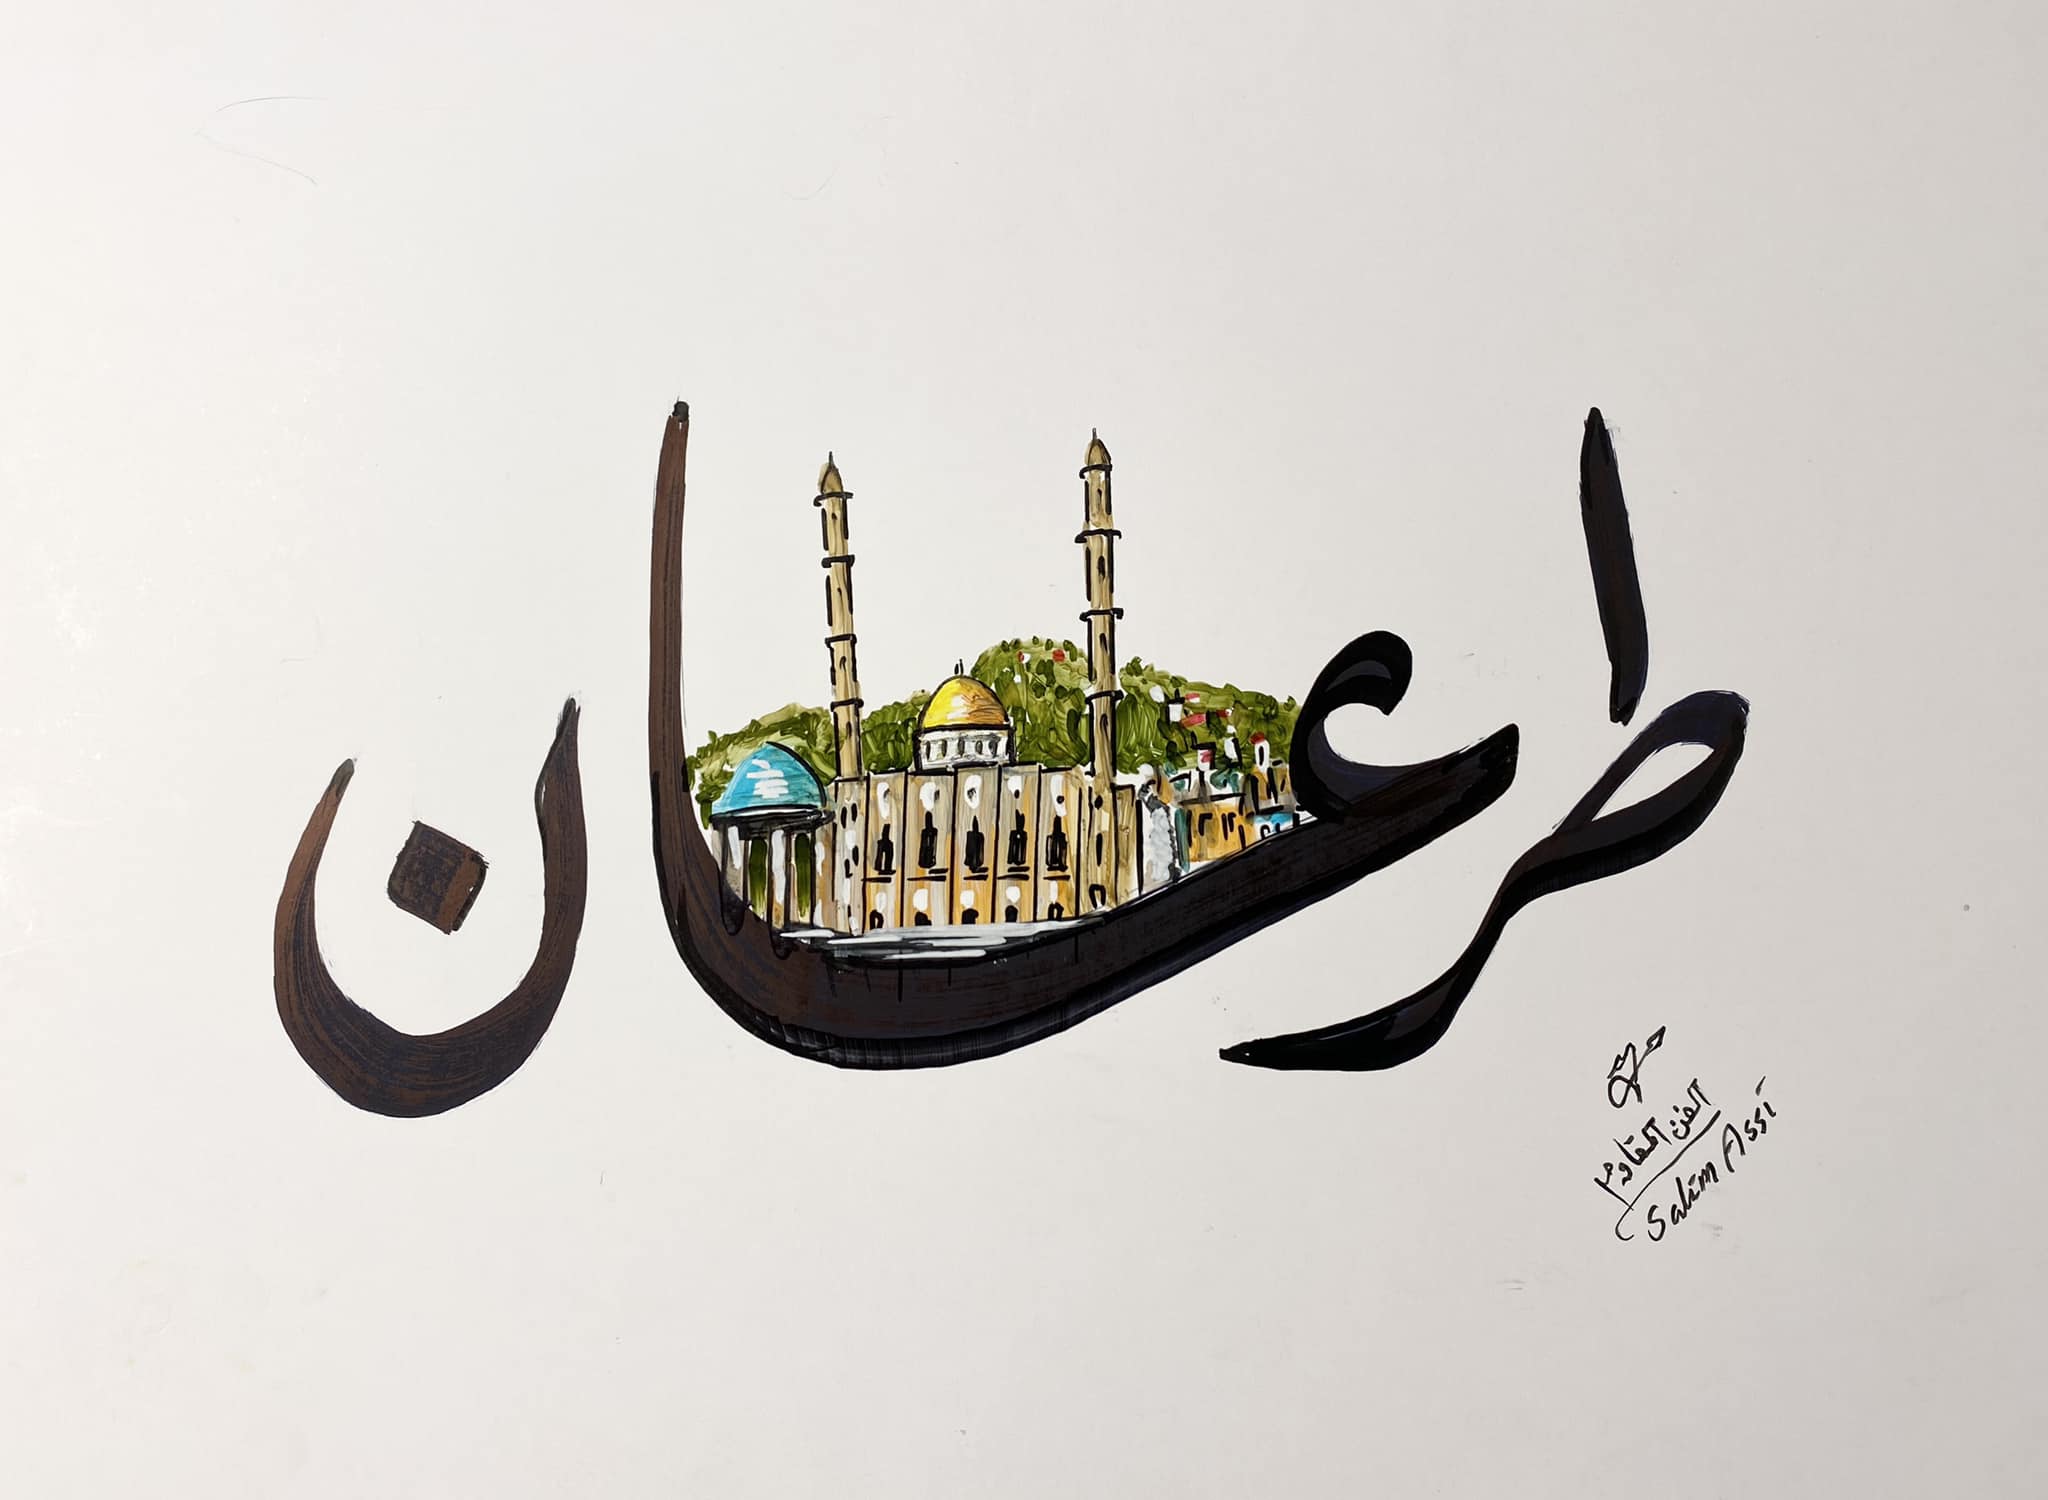 طرعان
الفن المقاوم
Salim Assi